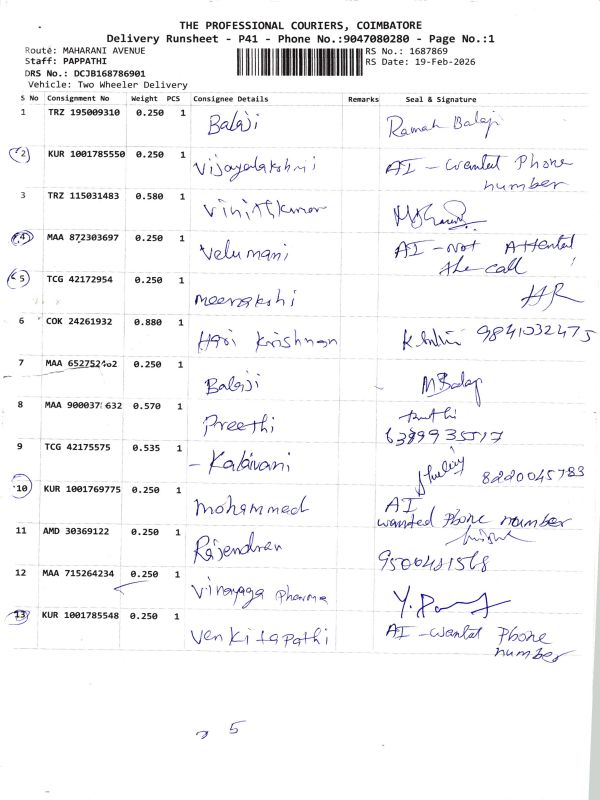 THE PROFESSIONAL COURIERS, COIMBATORE
Delivery Runsheet - P41 - Phone No.:9047080280 - Page No.:1
Route: MAHARANI AVENUE RS No.: 1687869
Staff: PAPPATHI RS Date: 19-Feb-2026
DRS No.: DCJB168786901
Vehicle: Two Wheeler Delivery
S No Consignment No Weight PCS Consignee Details Remarks Seal & Signature
1 TRZ 195009310 0.250 1 Balaji Ramah Balaji
2 KUR 1001785550 0.250 1 Vijayalakshmi AI - wantat Phone
number
3 TRZ 115031483 0.580 1 Vinithkumar
4 MAA 872303697 0.250 1 Velumani AI - Not Attental
the call
5 TCG 42172954 0.250 1 meenakshi
6 COK 24261932 0.880 1 Hari Krishnan 9841032475
7 MAA 0.250 1 Balaji M Balaji
8 MAA 0.570 1 Preethi
6399935517
9 TCG 42175575 0.535 1 - Kalaivani 8220045783
10 KUR 1001769775 0.250 1 mohammed AI
wanted Phone number
11 AMD 30369122 0.250 1 Rajendran
9500481568
12 MAA 715264234 0.250 1 Vinayaga Pharma
13 KUR 1001785548 0.250 1 Venkitapathi AI - wantat Phone
number
5